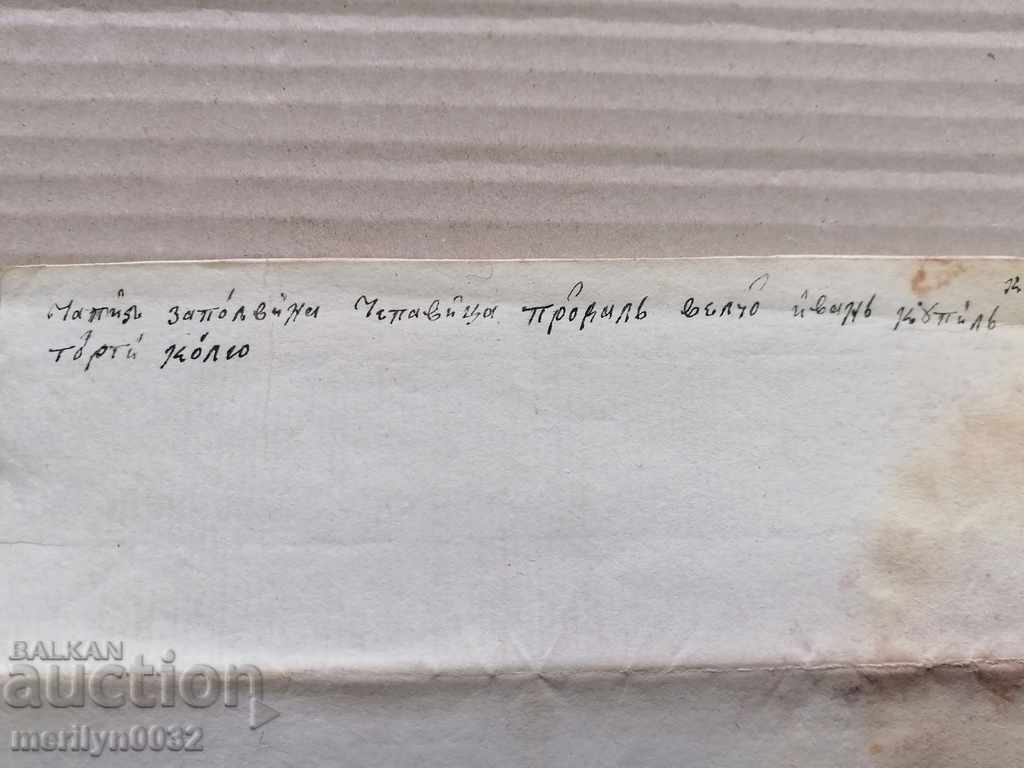 Тапиѧ заполвина Чепавица продалъ велчо иванъ купилъ
торти колю
BALKAN
auction
merilyn0032